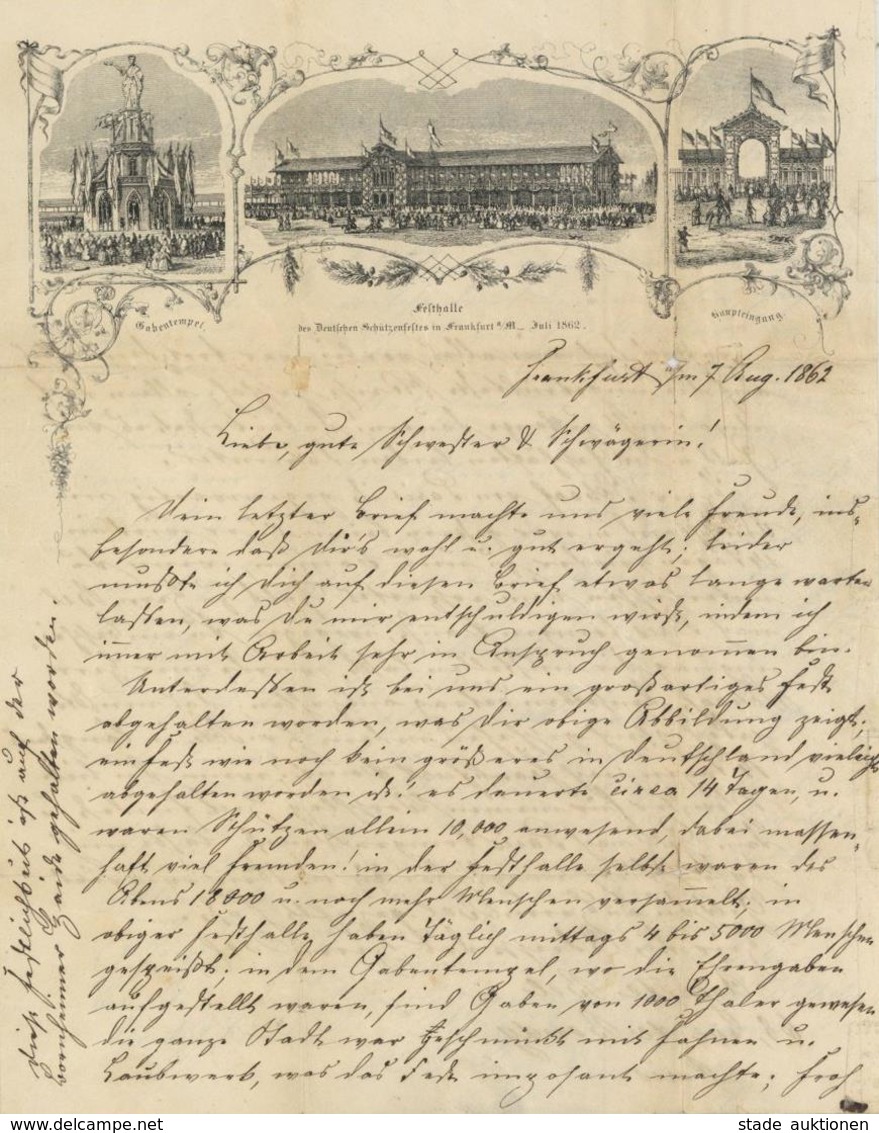 Gabentempel.
Festhalle
des Deutschen Schützenfestes in Frankfurt a/M. Juli 1862.
Haupteingang.
Frankfurt a/m 7 Aug. 1862
Liebe, gute Schwester & Schwägerin!
Dein letzter Brief machte uns viele Freude, ins-
besondere daß Dir's wohl u. gut ergeht; leider
mußte ich Dich auf diesen Brief etwas lange warten
lassen, was Du mir entschuldigen wirst, indem ich
immer mit Arbeit sehr in Anspruch genommen bin.
Unterdessen ist bei uns ein großartiges Fest
abgehalten worden, was Dir obige Abbildung zeigt;
ein Fest wie noch kein größeres in Deutschland vieleicht
abgehalten worden ist! es dauerte circa 14 Tagen, u.
waren Schützen allein 10,000 anwesend, dabei massen-
haft viel Fremden! in der Festhalle selbst waren des
Abens 18000 u. noch mehr Menschen versammelt; in
obiger Festhalle haben Täglich mittags 4 bis 5000 Menschen
gespeißt; in dem Gabentempel, wo die Ehrengaben
aufgestellt waren, sind Gaben von 1000 Thaler gewesen
die ganze Stadt war geschmückt mit Fahnen u.
Laubwerk, was das Fest imposant machte; Froh
Diese Festlichkeit ist auf der
Bornheimer Heide gehalten worden.
stade auktionen